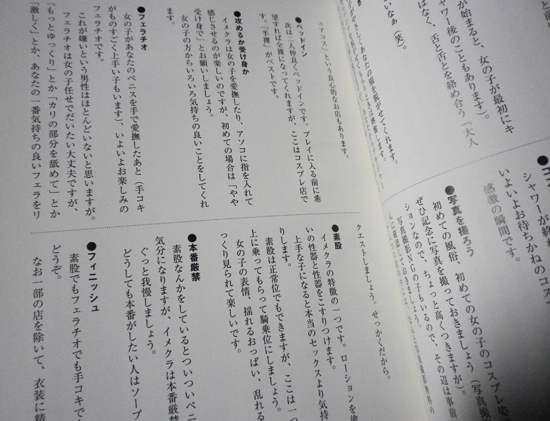 が始まると、女の子が最初にキ
シャワー後のこともあります)。
はなく、舌と舌とを絡め合う「大人
いなぁ(笑)。
シャワーが終
いよいよお待ちかねのコス
感激の瞬間です。
●写真を撮ろう
初めての風俗、初めての女の子のコスプレ姿
ぜひ記念に写真を撮っておきましょう(写真撮
ションなので、ちょっと高くつきますが)。
写真撮影NGの子もいるので、その辺は事前
という良心的なお店もあります。
●ベッドイン
次は二人仲良くベッドインです。プレイに入る前に希
望すれば全裸になってくれますが、ここはコスプレ店で
す。「半裸」がベストです。
●攻めるか受け身か
イメクラは女の子を愛撫したり、アソコに指を入れて
感じさせるのが楽しいのですが、初めての場合は「やや
受け身で」とお願いしましょう。
女の子の方からいろいろ気持ちの良いことをしてくれ
●フェラチオ
女の子があなたのペニスを手で愛撫したあと(手コキ
がものすごく上手い子もいます)、いよいよお楽しみの
フェラチオです。
これが嫌いという男性はほとんどいないと思いますが、
フェラチオは女の子任せでだいたい大丈夫ですが、
「もっとゆっくり」とか「カリの部分を舐めて」とか
「激しく」とか、あなたの一番気持ちの良いフェラをリ
クエストしましょう。せっかくだから。
●素股
イメクラの特徴の一つです。ローションを使
いの性器と性器をこすりつけます。
上手な子になると本当のセックスより気持
りします。
素股は正常位でもできますが、ここは一つ
上に乗ってもらって騎乗位にしましょう。
女の子の表情、揺れるおっぱい、乱れる
っくり見られて楽しいです。
●本番厳禁
素股なんかをしているとついついペニ
気分になりますが、イメクラは本番厳禁
ぐっと我慢しましょう。
どうしても本番がしたい人はソープ
●フィニッシュ
素股でもフェラチオでも手コキで
どうぞ。
なお一部の店を除いて、衣装に精